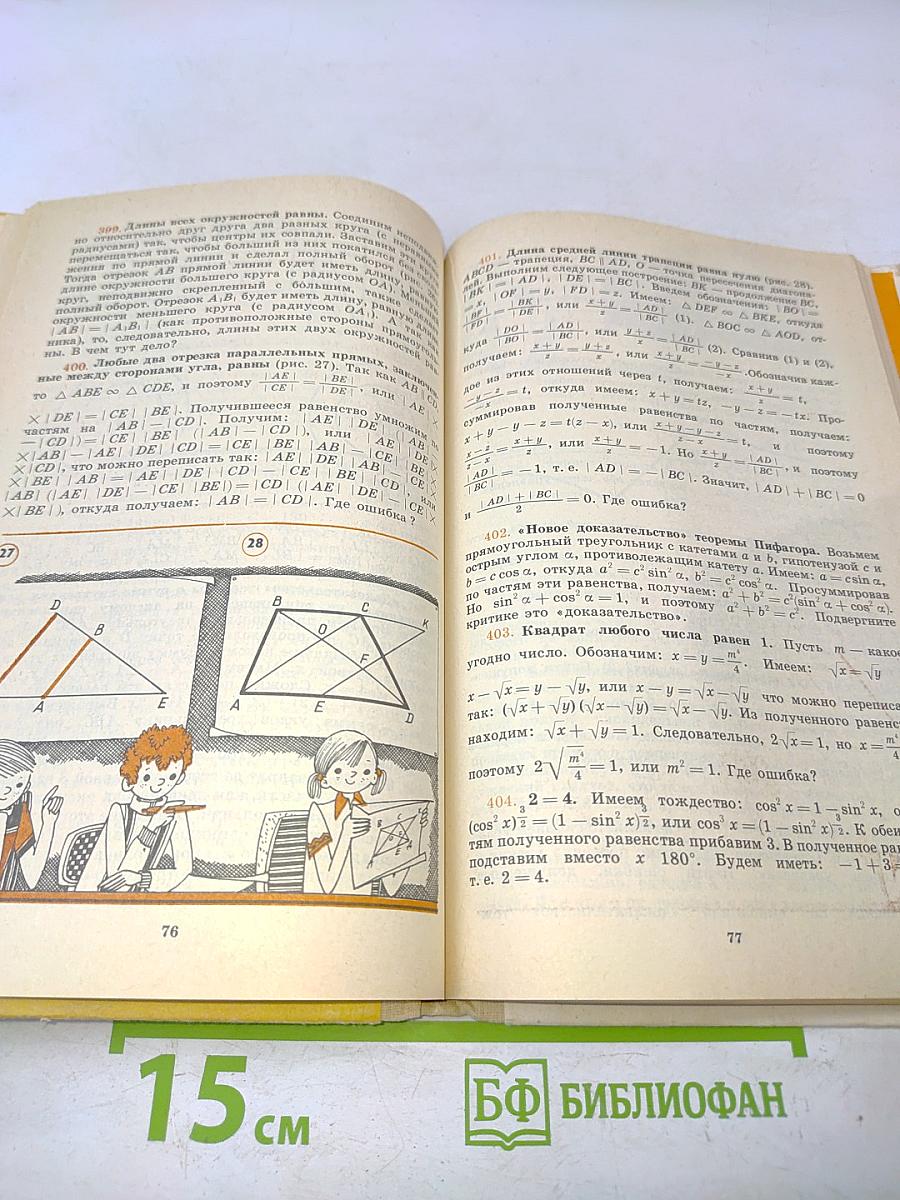 399. Длины всех окружностей равны. Соединим неподвиж-
но относительно друг друга два разных круга (с неравными
радиусами) так, чтобы центры их совпали. Заставим
перемещаться так, чтобы больший из них покатился без
жения по прямой линии и сделал полный оборот
Тогда отрезок AB прямой линии будет иметь длину, равную
длине окружности большего круга (с радиусом OA). Меньший
круг, неподвижно скрепленный с большим, также сделает
полный оборот. Отрезок A₁B₁ будет иметь длину, равную длине
окружности меньшего круга (с радиусом OA₁). А так как
|AB| = |A₁B₁| (как противоположные стороны прямоуголь-
ника), то, следовательно, длины этих двух окружностей рав-
ны. В чем тут дело?
400. Любые два отрезка параллельных прямых, заключен-
ные между сторонами угла, равны (рис. 27). Так как AB ∥ CD,
то △ ABE ∞ △ CDE, и поэтому |AE|/|CE| = |BE|/|DE|, или |AE| ×
× |DE| = |CE| |BE|. Получившееся равенство умножим по
частям на |AB| − |CD|. Получим: |AE| |DE| (|AB| −
− |CD|) = |CE| |BE| (|AB| − |CD|), или |AE| |DE| ×
× |AB| − |AE| |DE| |CD| = |CE| |BE| |AB| − |CE| |BE| ×
× |CD|, что можно переписать так: |AE| |DE| |AB| − |CE| ×
× |BE| |AB| = |AE| |DE| |CD| − |CE| |BE| |CD|, или
|AB| (|AE| |DE| − |CE| |BE|) = |CD| (|AE| |DE| − |CE| ×
× |BE|), откуда получаем: |AB| = |CD|. Где ошибка?
27
28
D
B
A
E
B
C
K
O
F
A
E
D
76
401. Длина средней линии трапеции равна нулю (рис. 28).
ABCD — трапеция, BC ∥ AD, O — точка пересечения диагона-
лей. Выполним следующее построение: BK — продолжение BC,
|BK| = |AD|, |DE| = |BC|. Введем обозначения: |BO| =
= x, |OF| = y, |FD| = z. Имеем: △ DEF ∞ △ BKF, откуда
|BF|/|FD| = |BK|/|DE|, или (x+y)/z = |AD|/|BC| (1). △ BOC ∞ △ AOD, от-
куда |DO|/|BO| = |AD|/|BC|, или (y+z)/x = |AD|/|BC| (2). Сравнив (1) и (2),
получаем: (x+y)/z = (y+z)/x, или (x+y)/z = (−y−z)/−x. Обозначив каж-
дое из этих отношений через t, получаем: (x+y)/z = t,
(−y−z)/−x = t, откуда имеем: x + y = tz, −y − z = −tx. Про-
суммировав полученные равенства по частям, получаем:
x + y − y − z = t(z − x), или (x+y−y−z)/(z−x) = t, и поэтому
(x−z)/(z−x) = (x+y)/z, или (x+y)/z = −1. Но (x+y)/z = |AD|/|BC|, и поэтому
|AD|/|BC| = −1, т. е. |AD| = −|BC|. Значит, |AD| + |BC| = 0
и (|AD| + |BC|)/2 = 0. Где ошибка?
402. «Новое доказательство» теоремы Пифагора. Возьмем
прямоугольный треугольник с катетами a и b, гипотенузой c и
острым углом α, противолежащим катету a. Имеем: a = c sin α,
b = c cos α, откуда a² = c² sin² α, b² = c² cos² α. Просуммировав
по частям эти равенства, получаем: a² + b² = c²(sin² α + cos² α).
Но sin² α + cos² α = 1, и поэтому a² + b² = c². Подвергните
критике это «доказательство».
403. Квадрат любого числа равен 1. Пусть m — какое
угодно число. Обозначим: x = y = m⁴/4. Имеем: √x = √y
x − √x = y − √y, или x − y = √x − √y что можно переписа
так: (√x + √y) (√x − √y) = √x − √y. Из полученного равенс
находим: √x + √y = 1. Следовательно, 2√x = 1, но x = m⁴/4
поэтому 2√(m⁴/4) = 1, или m² = 1. Где ошибка?
404. 2 = 4. Имеем тождество: cos² x = 1 − sin² x, о
(cos² x)^(3/2) = (1 − sin² x)^(3/2), или cos³ x = (1 − sin² x)^(3/2). К обеи
тям полученного равенства прибавим 3. В полученное рав
подставим вместо x 180°. Будем иметь: −1 + 3 =
т. е. 2 = 4.
77
15 см
БФ БИБЛИОФАН